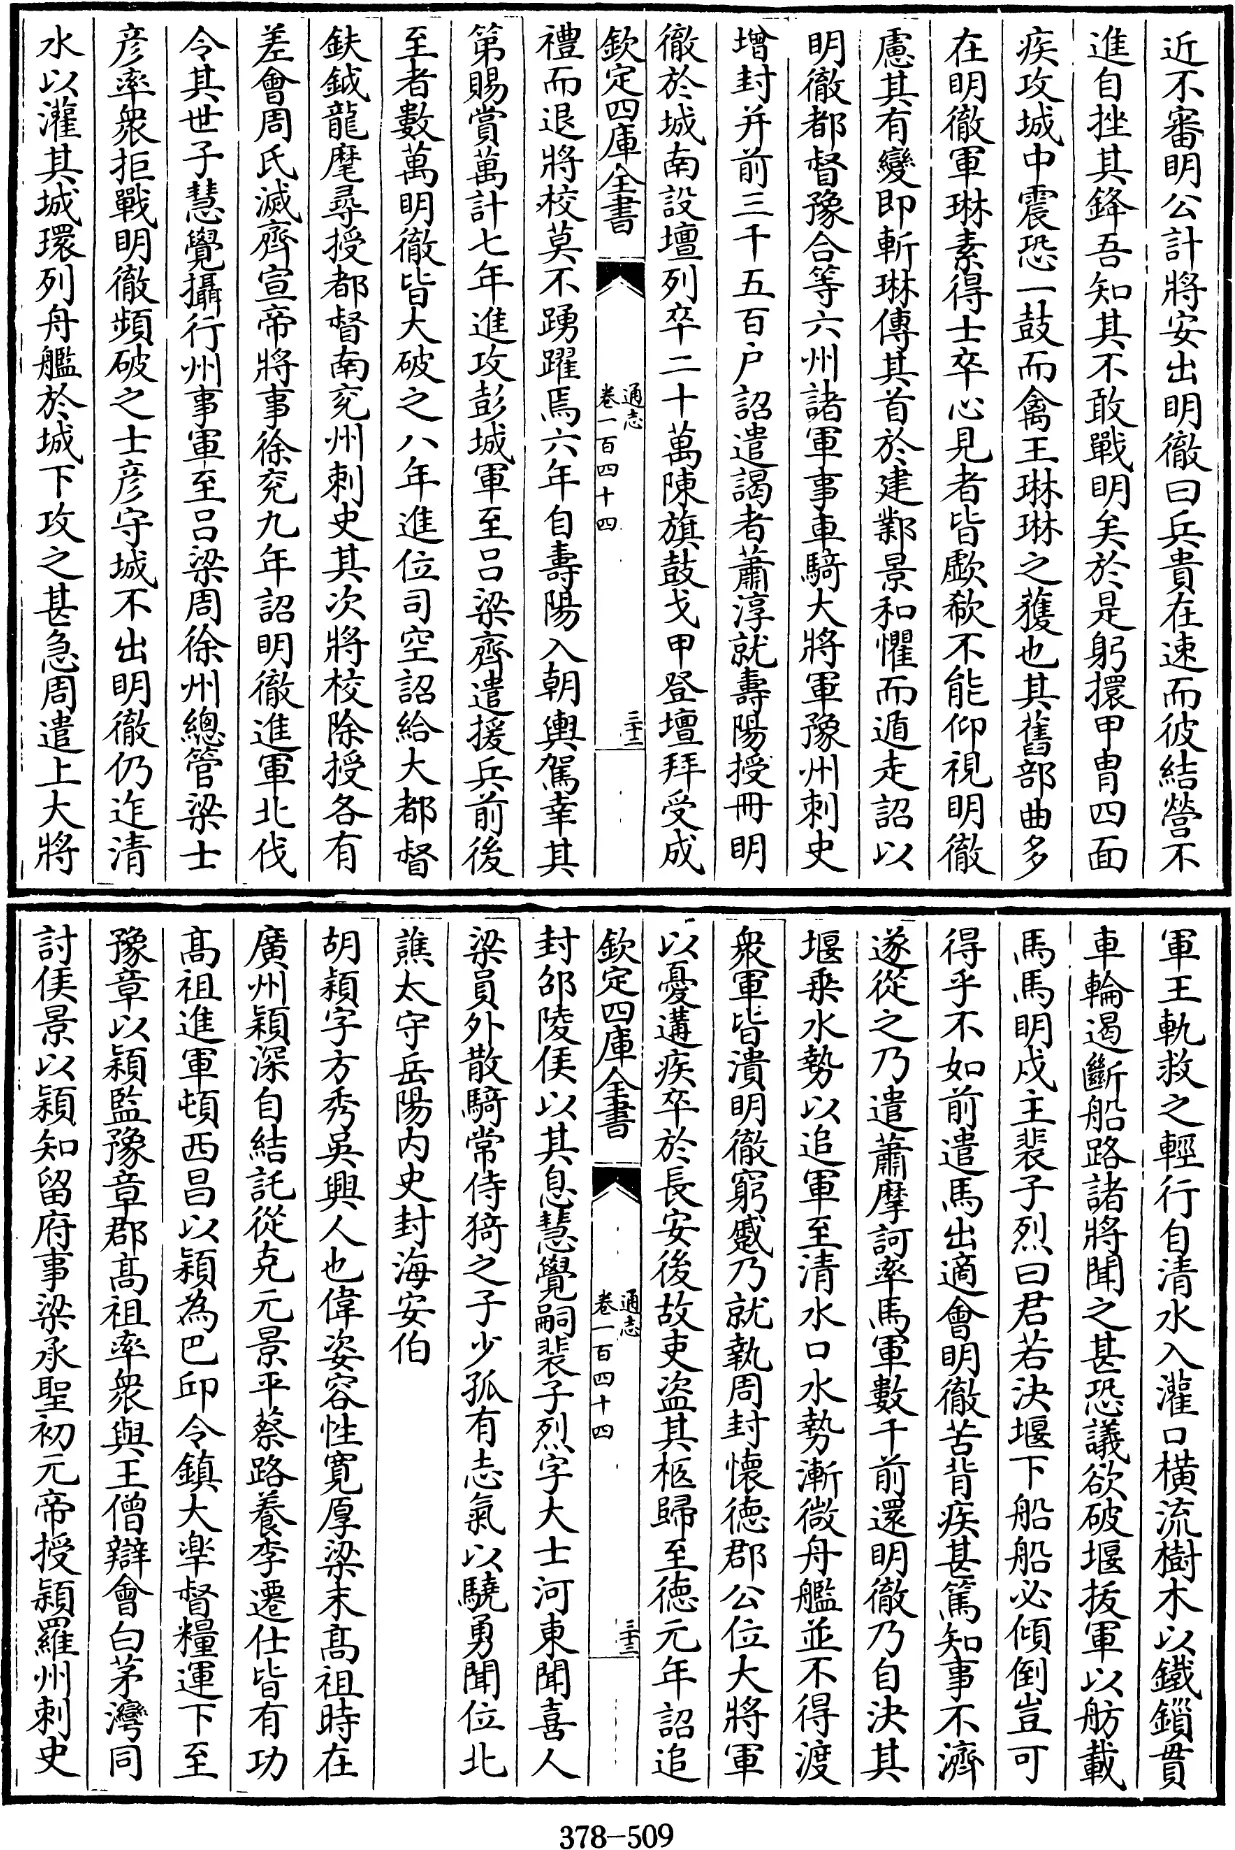 近不審明公計將安出明徹曰兵貴在速而彼結營不
進自挫其鋒吾知其不敢戰明矣於是躬擐甲胄四面
疾攻城中震恐一鼓而禽王琳琳之獲也其舊部曲多
在明徹軍琳素得士卒心見者皆歔欷不能仰視明徹
慮其有變即斬琳傳其首於建鄴景和懼而遁走詔以
明徹都督豫合等六州諸軍事車騎大將軍豫州刺史
增封并前三千五百户詔遣謁者蕭淳就壽陽授冊明
徹於城南設壇列卒二十萬陳旗鼓戈甲登壇拜受成
欽定四庫全書
通志
卷一百四十四
三十二
禮而退將校莫不踴躍焉六年自壽陽入朝輿駕幸其
第賜賞萬計七年進攻彭城軍至吕梁齊遣援兵前後
至者數萬明徹皆大破之八年進位司空詔給大都督
鈇鉞龍麾尋授都督南兖州刺史其次將校除授各有
差會周氏滅齊宣帝將事徐兖九年詔明徹進軍北伐
令其世子慧覺攝行州事軍至吕梁周徐州總管梁士
彦率衆拒戰明徹頻破之士彦守城不出明徹仍迮清
水以灌其城環列舟艦於城下攻之甚急周遣上大將
軍王軌救之輕行自清水入灌口横流樹木以鐵鎻貫
車輪遏斷船路諸將聞之甚恐議欲破堰拔軍以舫載
馬馬明戍主裴子烈曰君若決堰下船船必傾倒豈可
得乎不如前遣馬出適會明徹苦背疾甚篤知事不濟
遂從之乃遣蕭摩訶率馬軍數千前還明徹乃自決其
堰乗水勢以追軍至清水口水勢漸微舟艦並不得渡
衆軍皆潰明徹窮蹙乃就執周封懷德郡公位大將軍
以憂遘疾卒於長安後故吏盗其柩歸至德元年詔追
欽定四庫全書
通志
卷一百四十四
三十三
封邵陵侯以其息慧覺嗣裴子烈字大士河東聞喜人
梁員外散騎常侍猗之子少孤有志氣以驍勇聞位北
譙太守岳陽内史封海安伯
胡穎字方秀吳興人也偉姿容性寛厚梁末髙祖時在
廣州穎深自結託從克元景平蔡路養李遷仕皆有功
髙祖進軍頓西昌以穎為巴邱令鎮大臯督糧運下至
豫章以穎監豫章郡髙祖率衆與王僧辯會白茅灣同
討侯景以穎知留府事梁承聖初元帝授穎羅州刺史
378-509